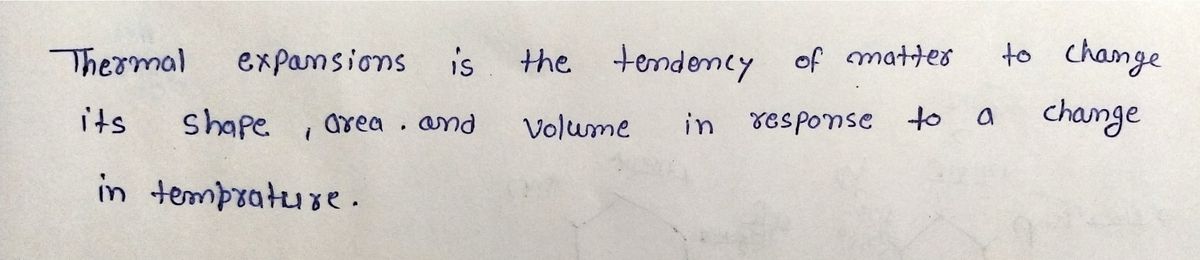 Thermal expansions is the tendency of matter to change
its shape, area. and volume in response to a change
in temprature.